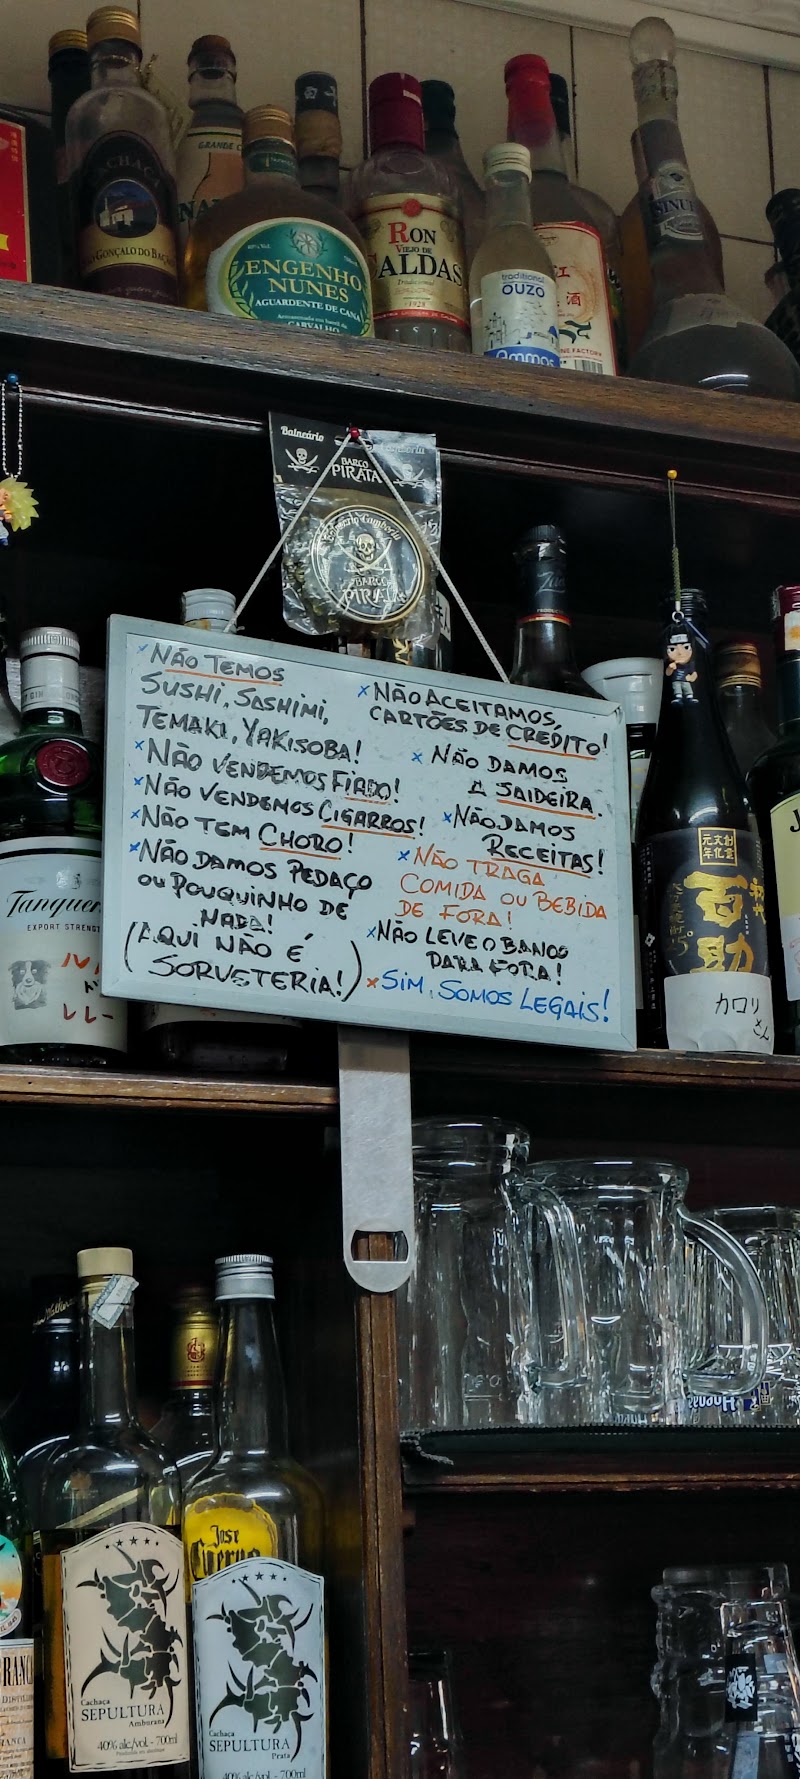 CACHAÇA
GONÇALO DO
GRANDE
ENGENHO
NUNES
AGUARDENTE DE CANA
CARVALHO
RON
VIEJO DE
CALDAS
Tradicional
traditional
OUZO
Ammos
Balneário
BARCO
PIRATA
Balneário Camboriú
BARCO
PIRATA
× NÃO TEMOS
SUSHI, SASHIMI,
TEMAKI, YAKISOBA!
× NÃO VENDEMOS FIADO!
× NÃO VENDEMOS CIGARROS!
× NÃO TEM CHORO!
× NÃO DAMOS PEDAÇO
OU POUQUINHO DE
NADA!
(AQUI NÃO É
SORVETERIA!)
× NÃO ACEITAMOS
CARTÕES DE CREDITO!
× NÃO DAMOS
A SAIDEIRA.
× NÃO DAMOS
RECEITAS!
× NÃO TRAGA
COMIDA OU BEBIDA
DE FORA!
× NÃO LEVE O BANCO
PARA FORA!
× SIM, SOMOS LEGAIS!
Tanquer
EXPORT STRENGT
レレー
百助
カロリ
さん
Jose
Cuervo
Cachaça
SEPULTURA
Amburana
40% alc/vol - 700ml
Cachaça
SEPULTURA
Prata
40% alc/vol - 700ml